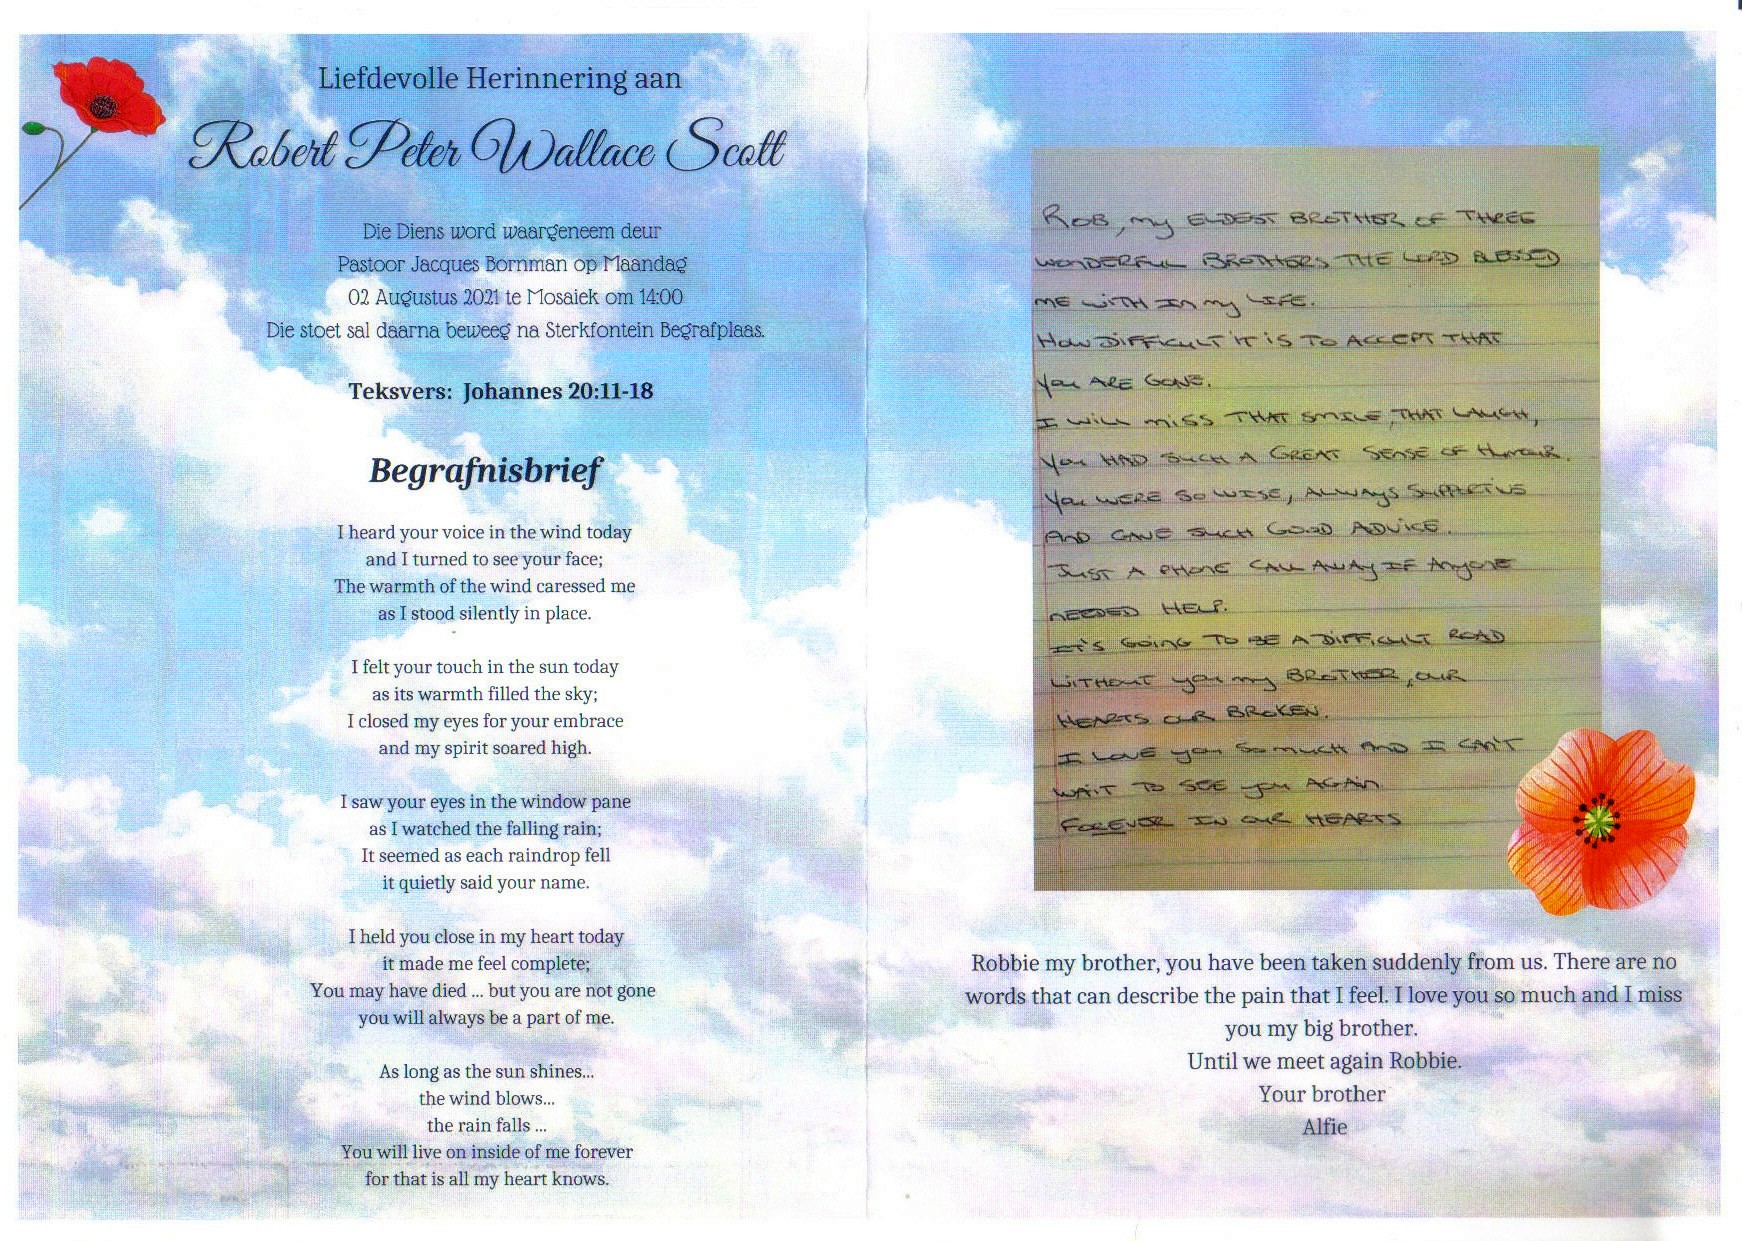 Liefdevolle Herinnering aan
Robert Peter Wallace Scott
Die Diens word waargeneem deur
Pastoor Jacques Bornman op Maandag
02 Augustus 2021 te Mosaiek om 14:00
Die stoet sal daarna beweeg na Sterkfontein Begrafplaas.
Teksvers: Johannes 20:11-18
Begrafnisbrief
I heard your voice in the wind today
and I turned to see your face;
The warmth of the wind caressed me
as I stood silently in place.
I felt your touch in the sun today
as its warmth filled the sky;
I closed my eyes for your embrace
and my spirit soared high.
I saw your eyes in the window pane
as I watched the falling rain;
It seemed as each raindrop fell
it quietly said your name.
I held you close in my heart today
it made me feel complete;
You may have died ... but you are not gone
you will always be a part of me.
As long as the sun shines...
the wind blows...
the rain falls ...
You will live on inside of me forever
for that is all my heart knows.
ROB, my ELDEST BROTHER OF THREE
WONDERFUL BROTHERS THE LORD BLESSED
ME WITH IN my LIFE.
HOW DIFFICULT IT IS TO ACCEPT THAT
you ARE GONE.
I WILL MISS THAT SMILE, THAT LAUGH,
you HAD SUCH A GREAT SENSE OF HUMOUR.
you WERE SO WISE, ALWAYS SUPPORTIVE
AND GAVE SUCH GOOD ADVICE.
JUST A PHONE CALL AWAY IF ANYONE
NEEDED HELP.
IT'S GOING TO BE A DIFFICULT ROAD
WITHOUT you my BROTHER, OUR
HEARTS OUR BROKEN.
I LOVE you SO MUCH AND I CAN'T
WAIT TO SEE you AGAIN
FOREVER IN OUR HEARTS
Robbie my brother, you have been taken suddenly from us. There are no
words that can describe the pain that I feel. I love you so much and I miss
you my big brother.
Until we meet again Robbie.
Your brother
Alfie